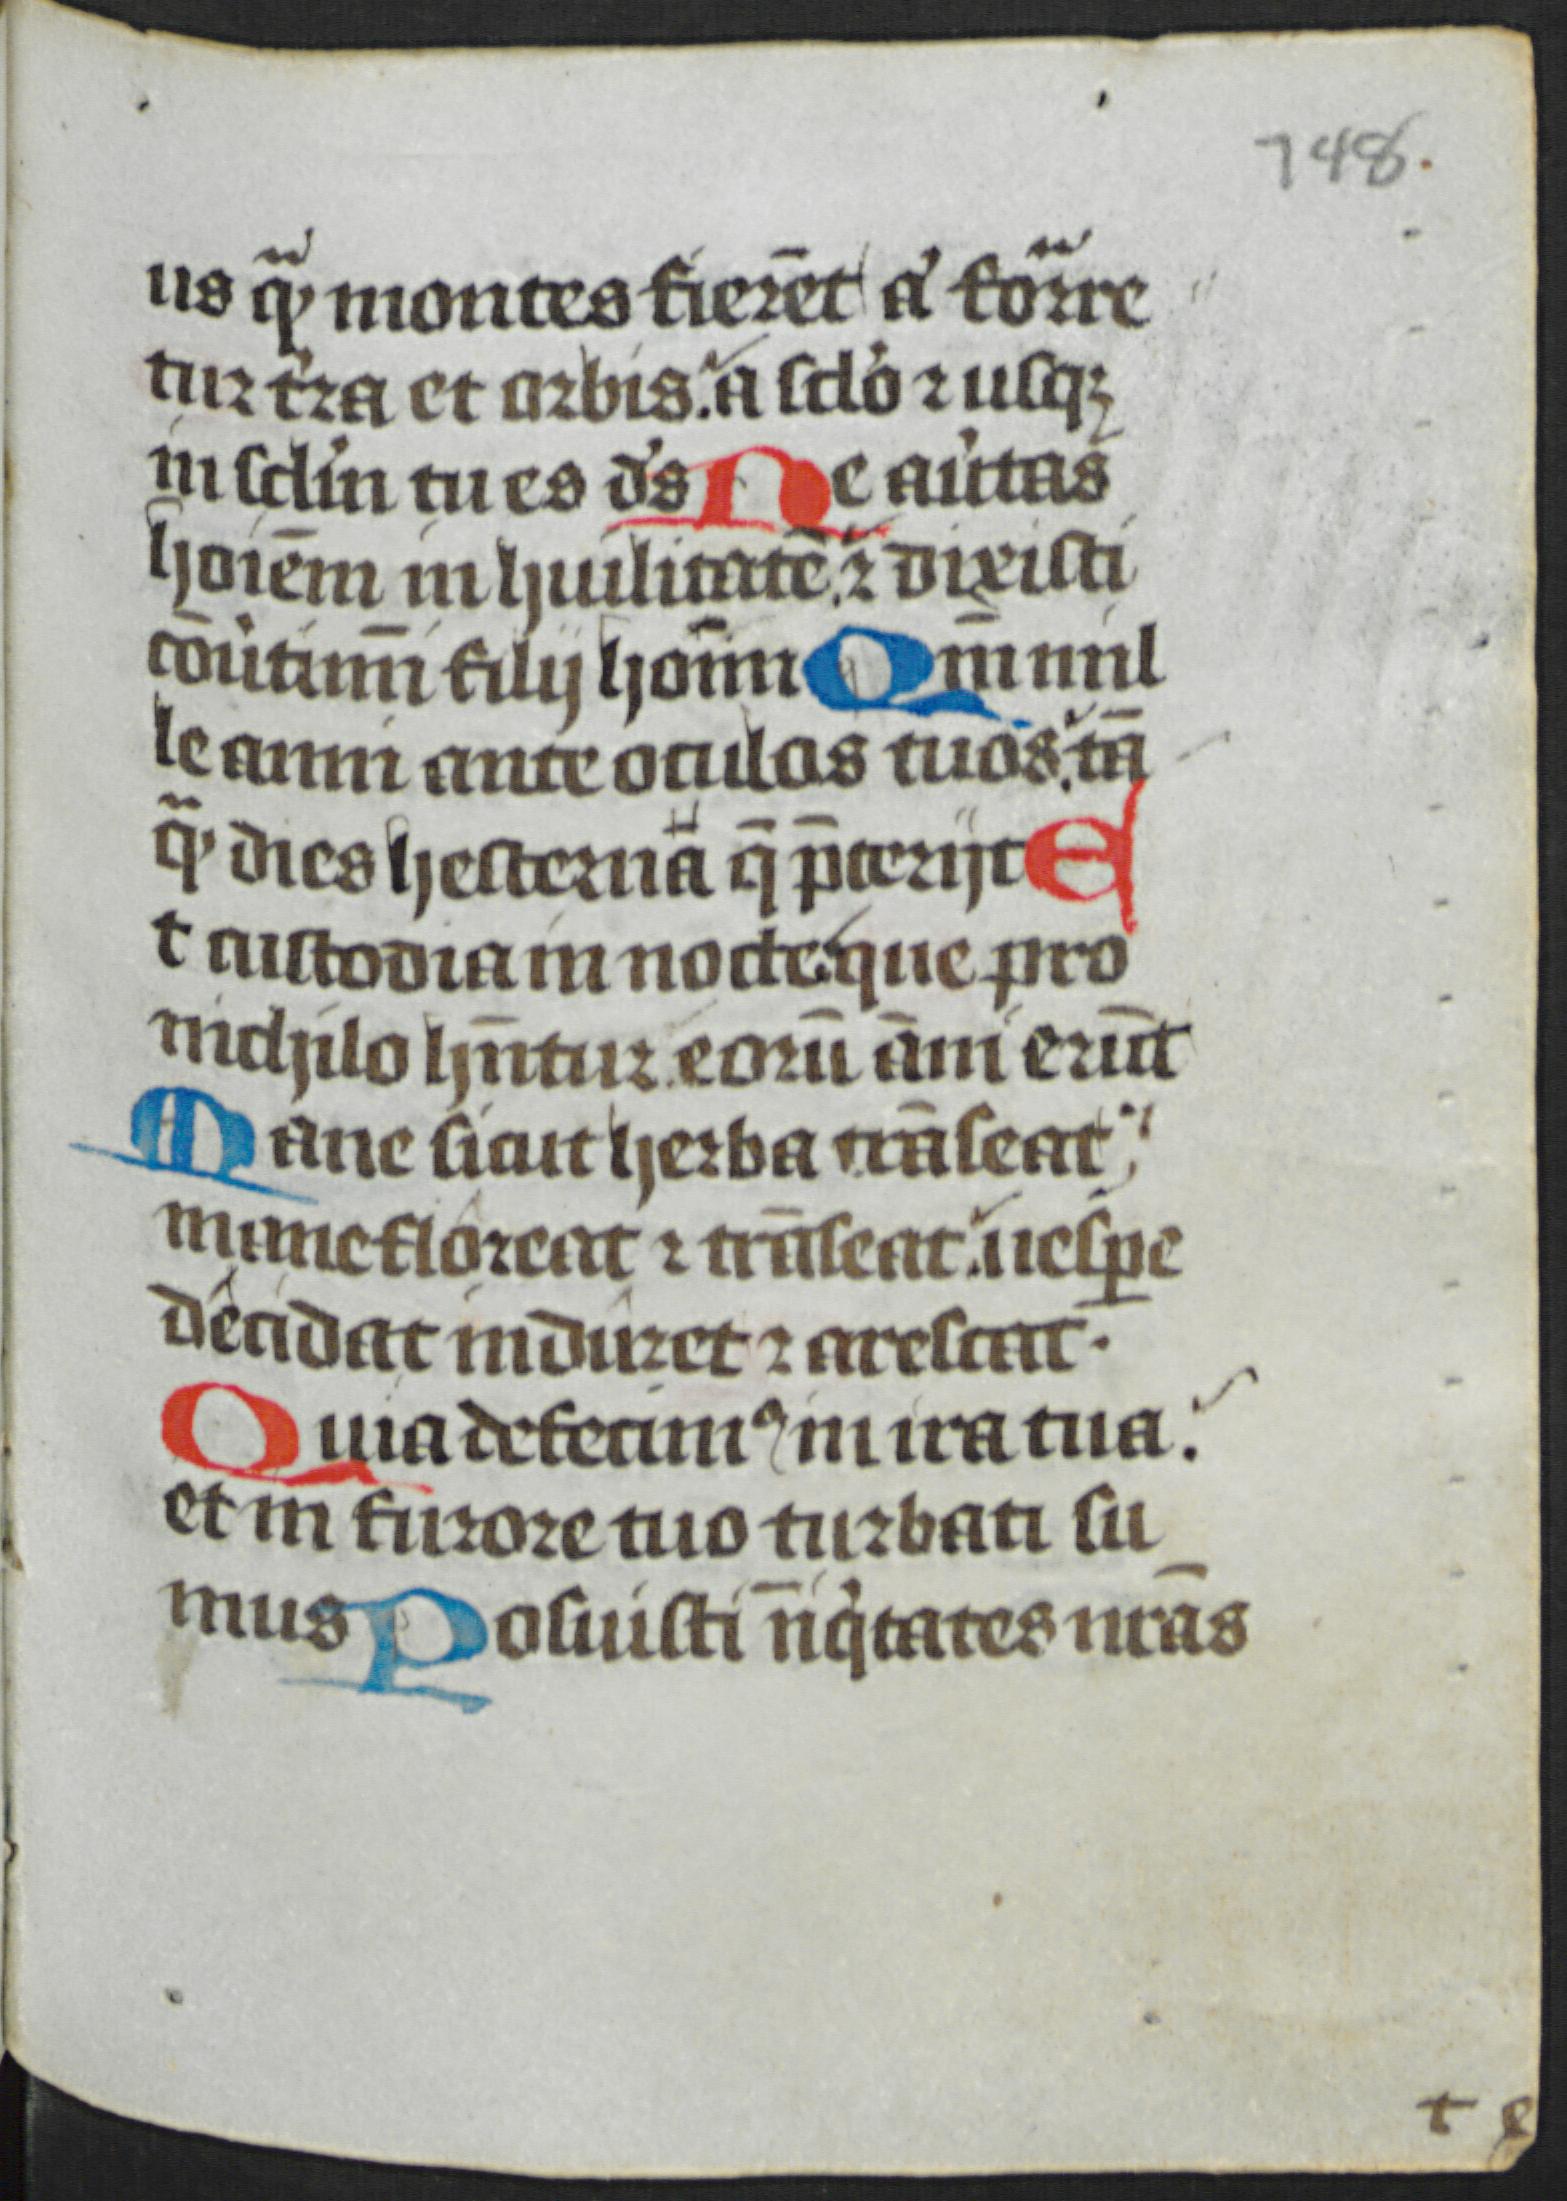 748.
us qͣm montes fierēt a' forͣre
tur t'ra et orbis. a sclo ⁊ usqꝫ
in sclm tu es d's Ne au'tas
hoiēm in huilitatē. ⁊ dixisti
cōu'timī filij homī Qm̄ mil
le anni ante oculos tuos. tā
qͣm dies hesternā q̄ p̄terijt E
t custodia in nocte. que pro
nichilo hn̄tur. eorū āni erūt
Mane sicut herba trāseat
mane floreat ⁊ trāseat. uesꝑe
decidat induret ⁊ arescat.
Quia defecimꝰ in ira tua.
et in furore tuo turbati su
mus Posuisti īiqͥtates nrās
t e